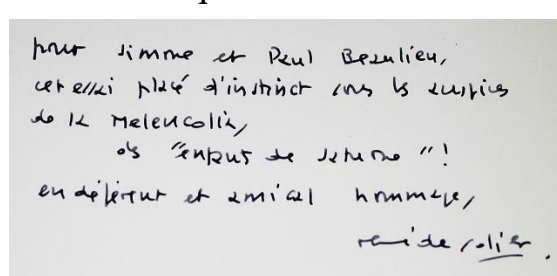 pour Simone et Paul Beaulieu,
cet essai placé d'instinct sous les auspices
de la Melencolia,
des "enfants de saturne"!
en déférent et amical hommage,
rené de solier.